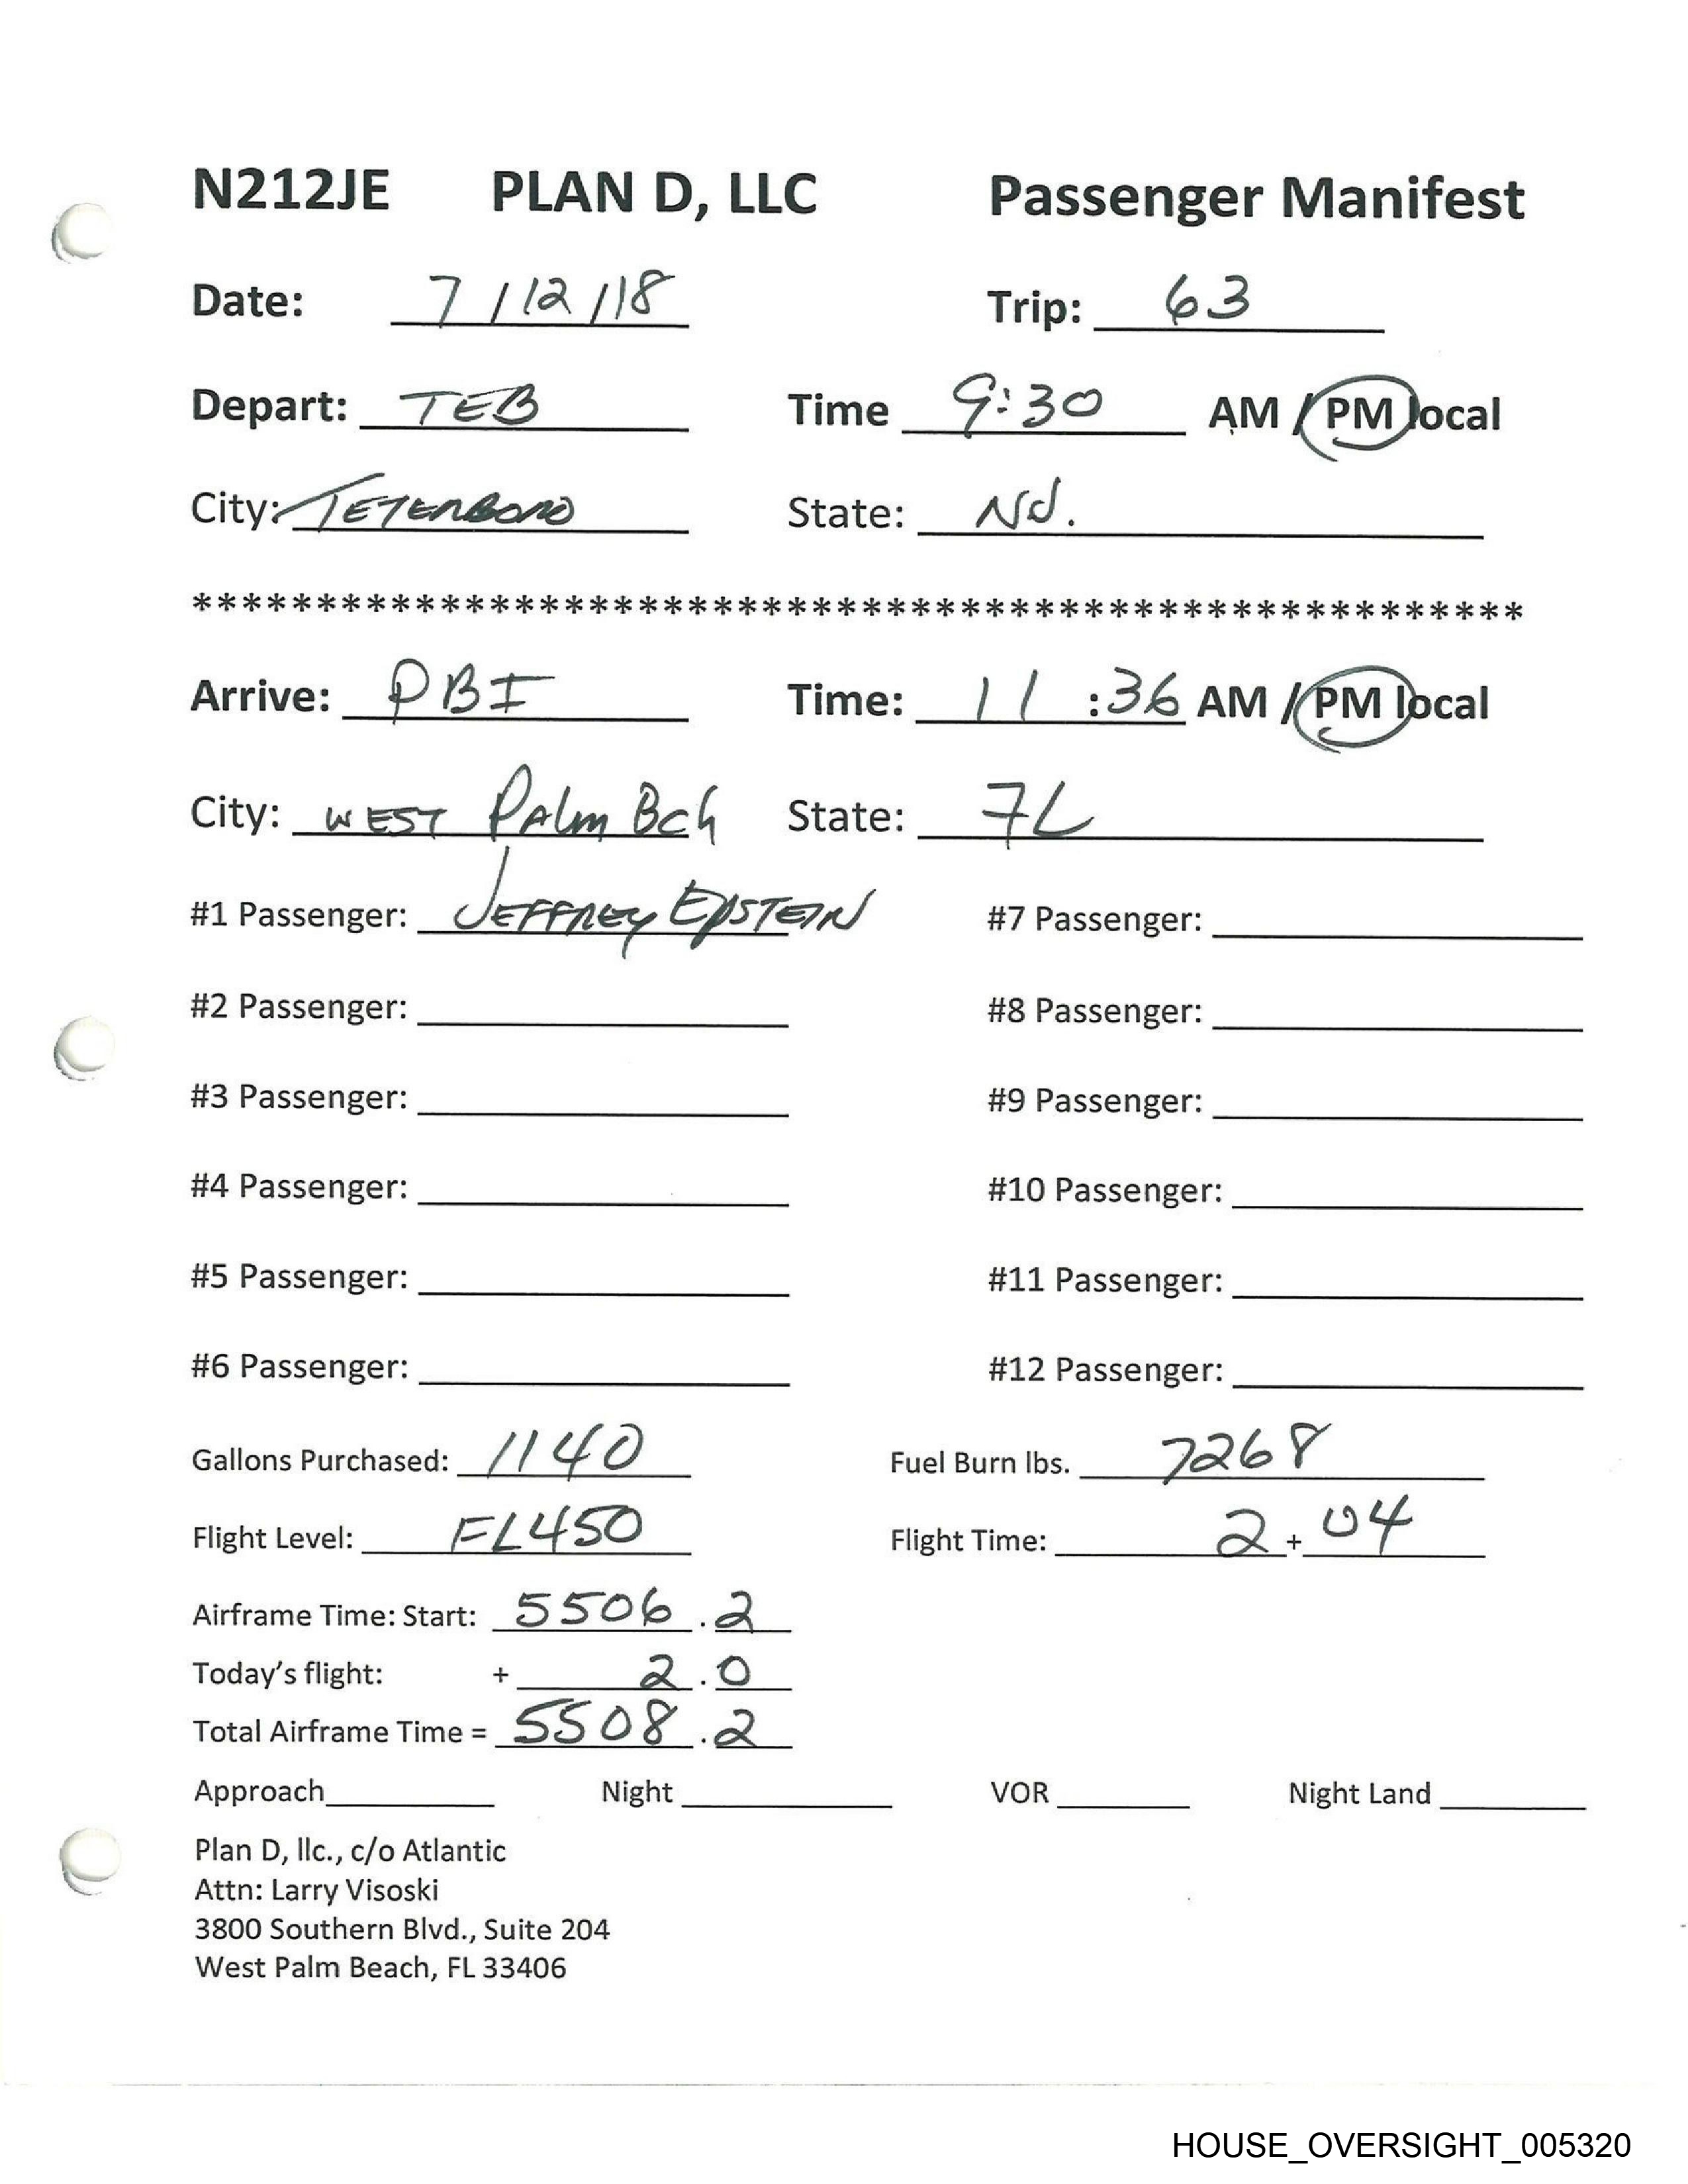 N212JE PLAN D, LLC Passenger Manifest
Date: 7/12/18 Trip: 63
Depart: TEB Time 9:30 AM / PM local
City: TETERBORO State: NJ.
******************************************************
Arrive: PBI Time: 11:36 AM / PM local
City: WEST PALM BCH State: FL
#1 Passenger: JEFFREY EPSTEIN #7 Passenger:
#2 Passenger: #8 Passenger:
#3 Passenger: #9 Passenger:
#4 Passenger: #10 Passenger:
#5 Passenger: #11 Passenger:
#6 Passenger: #12 Passenger:
Gallons Purchased: 1140 Fuel Burn lbs. 7268
Flight Level: FL450 Flight Time: 2 + 04
Airframe Time: Start: 5506.2
Today's flight: + 2.0
Total Airframe Time = 5508.2
Approach Night VOR Night Land
Plan D, llc., c/o Atlantic
Attn: Larry Visoski
3800 Southern Blvd., Suite 204
West Palm Beach, FL 33406
HOUSE_OVERSIGHT_005320